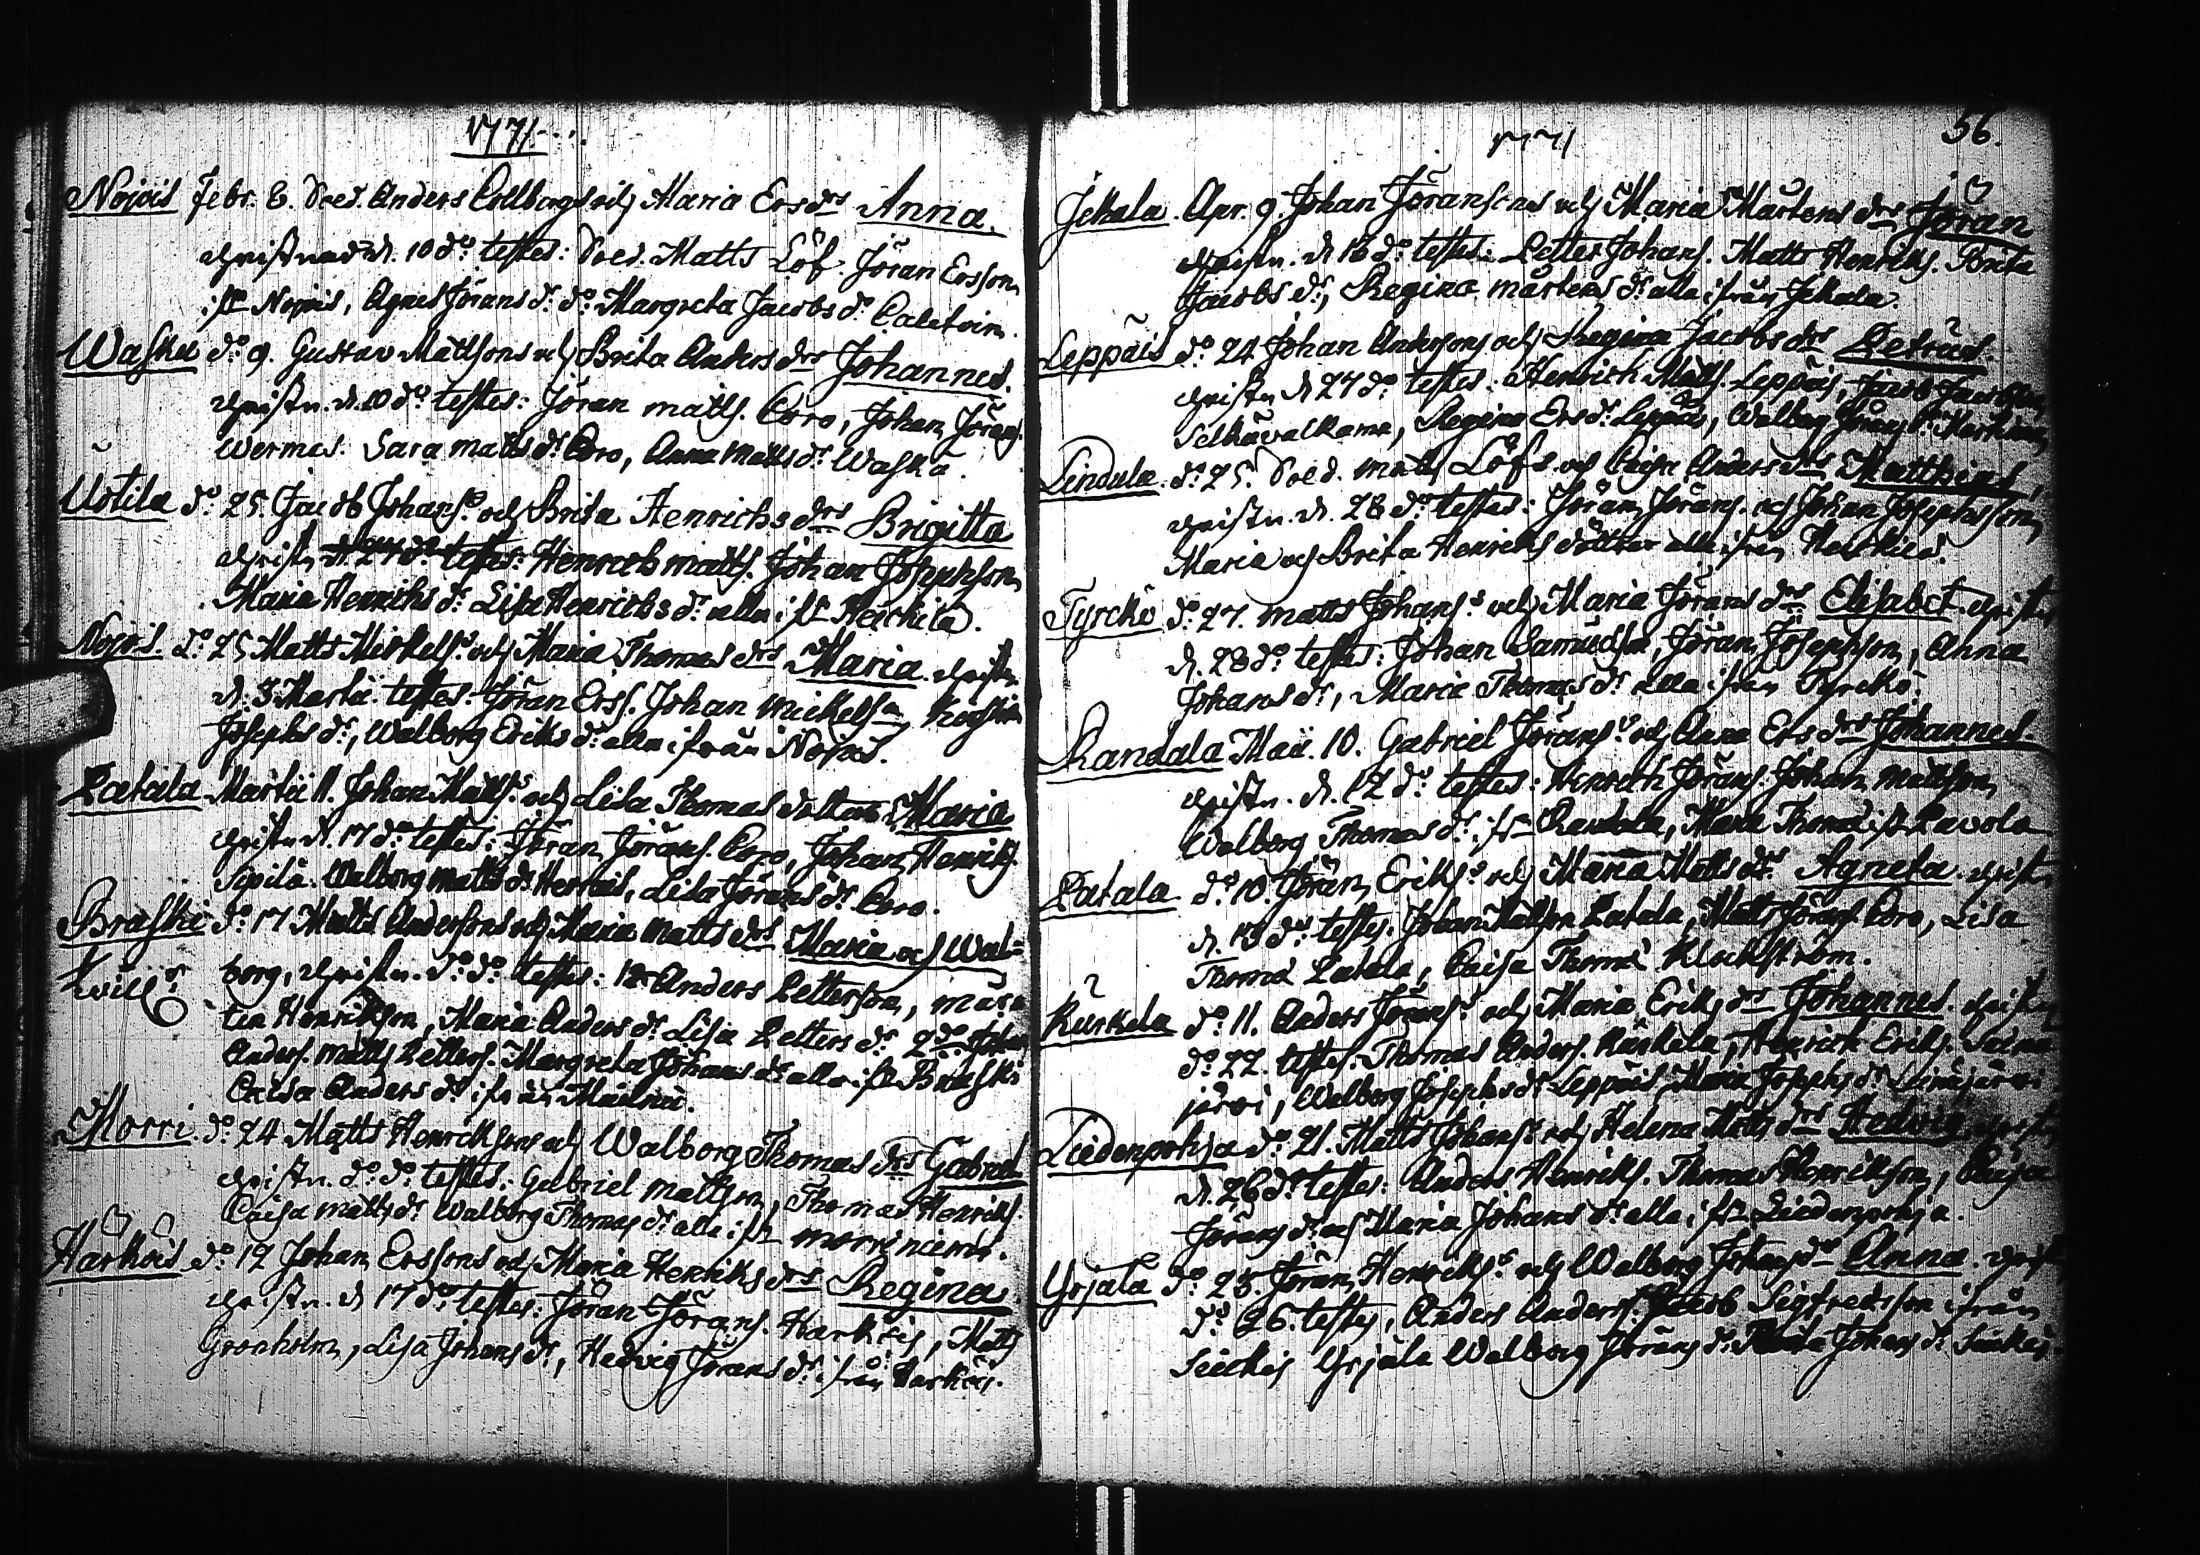 1771
Nopois Febr. 6. Sold. Anders Collbergs och Maria Ersdrs Anna.
christnad d. 10 do testes: Sold. Matts Löf. Jöran Ersson
ifr Nopois, Agnes Jörans dr do Margreta Jacobs dr
Waska do 9. Gustav Mattsons och Brita Anders drs Johannes.
christn. d. 10 do testes: Jöran matts. Coro, Johan Jörans.
Wermes. Sara matts dr Coro, Anna Matts dr Waska.
Uotila do 25. Jacob Johans. och Brita Henrichs drs Brigitta
christn testes: Henrich matts. Johan Josephson
Maria Henrichs dr Lisa Henrichs dr alla ifr Heickilä.
Nopois. do 25 Matts Mickels. och Maria Thomas drs Maria christn.
d. 3 Martii testes: Jöran Erss. Johan Mickelsn
Josephs dr, Walborg Eriks dr alla ifrån Nopois.
Patala Martii 11. Johan Matts. och Lisa Thomas dotters Maria
christn d. 17 do testes: Jöran Jörans. Coro, Johan Henriks.
Sipilä. Walborg matts dr Lisa Jörans dr Coro.
Braski do 17 Matts Andersons och Maria Matts drs Maria och Wal=
borg, christn. do do testes: Anders Petterson, Mår=
ten Henrikson, Maria Anders dr Lisa Petters dr 2do Johan
Anders. Matts Petters. Margreta Johans dr alla ifr Braski
Caisa Anders dr ifrån
Morri. do 24 Matts Henricksons och Walborg Thomas drs Gabriel
christn. do do testes: Gabriel mattson, Thomas Henriks.
Caisa matts dr Walborg Thomas dr alla ifr morriniemi.
Härköis do 12 Johan Erssons och Maria Henriks drs Regina
christn. d 17 do testes: Jöran Jörans. Harköis, Matts
Gronholm, Lisa Johans dr, Hedvig Jörans dr ifrån Harköis.
1771
56.
Jekala. Apr. 9. Johan Göransons och Maria Mårtens drs Jöran
christn. d 16 do testes: Petter Johans. Matts Henriks. Brita
Jacobs dr, Regina mårtens dr alla ifrån Jekala.
Leppäis do 24 Johan Andersons och Regina Jacobs drs Petrus.
christn d 27 do testes: Henrich Matts. Leppäis, Jacob
Selkävalkama, Regina Ers dr Leppäis, Walborg Jörans dr
Lindula. do 25. Sold. Matts Löfs. och Caisa Anders drs Matthias,
christn. d. 28 do testes: Jöran Jörans. och Johan Josephsson,
Maria och Brita Henriks döttrar alla ifrån Heickilä.
Tyrckö do 27. Matts Johans. och Maria Jörans drs Elisabet christn
d. 28 do testes: Johan Samuelsn, Jöran Josephson, Anna
Johans dr, Maria Thomas dr alla ifrån Tyrckö.
Randala Maii. 10. Gabriel Jörans. och Anna Ers drs Johannes.
christn. d. 12 do testes: Henrich Jörans. Johan Mattson
Walborg Thomas dr ifrn Randala, Maria Thomæ ifr Pavola
Patala do 10. Jöran Eriks. och Maria Matts drs Agneta christn
d. 13 do testes. Johan Mattson Patala, Matts Jörans. Coro, Lisa
Thomæ Patala, Caisa Thomæ Klockström.
Kurkela do 11. Anders Jörans. och Maria Eriks drs Johannes. christn
do 22. testes. Thomas Anders. Kurkela, Henrich Eriks.
järvi, Walborg Josephs dr Leppäis, Maria Josephs dr
Liedenpohja do 21. Matts Johans. och Helena Matts drs Hedvig christn
d. 26 do testes: Anders Henriks. Thomas Henrikson, Caisa
Jörans dr och Maria Johans dr alla ifrn Liedenpohja.
Yrjälä do 23. Jöran Henricks. och Walborg Johans dr Anna. christn
do 26. testes, Anders Anders. Jacob Sigfredsson ifrån
Yrjälä Walborg Jörans dr Johans dr